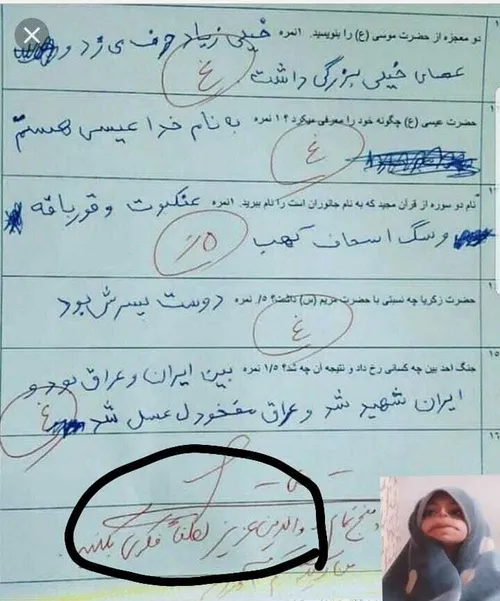 دو معجزه از حضرت موسی (ع) را بنویسید. ۱نمره خیلی زیاد حرف می زد و
عصای خیلی بزرگی داشت
غ
حضرت عیسی (ع) چگونه خود را معرفی میکرد؟ ۱ نمره به نام خدا عیسی هستم
غ
نام دو سوره از قرآن مجید که به نام جانوران است را نام ببرید. ۱نمره عنکبوت و قورباقه
و سگ اسحاف کهب
۰/۵
حضرت زکریا چه نسبتی با حضرت مریم (س) داشت؟ ۰/۵ نمره دوست پسرش بود
غ
۱۵
جنگ احد بین چه کسانی رخ داد و نتیجه آن چه شد؟ ۱/۵ نمره بین ایران و عراق بود و
ایران شهید شد و عراق مفخودل عسل شد
غ
۱۶
والدین عزیز لطفاً فکری بکنید